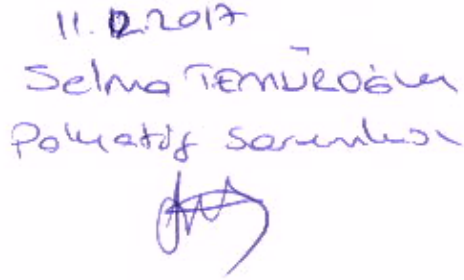 11.12.2017
Selma TEMUROĞLU
Poliçatif Sorumlusu